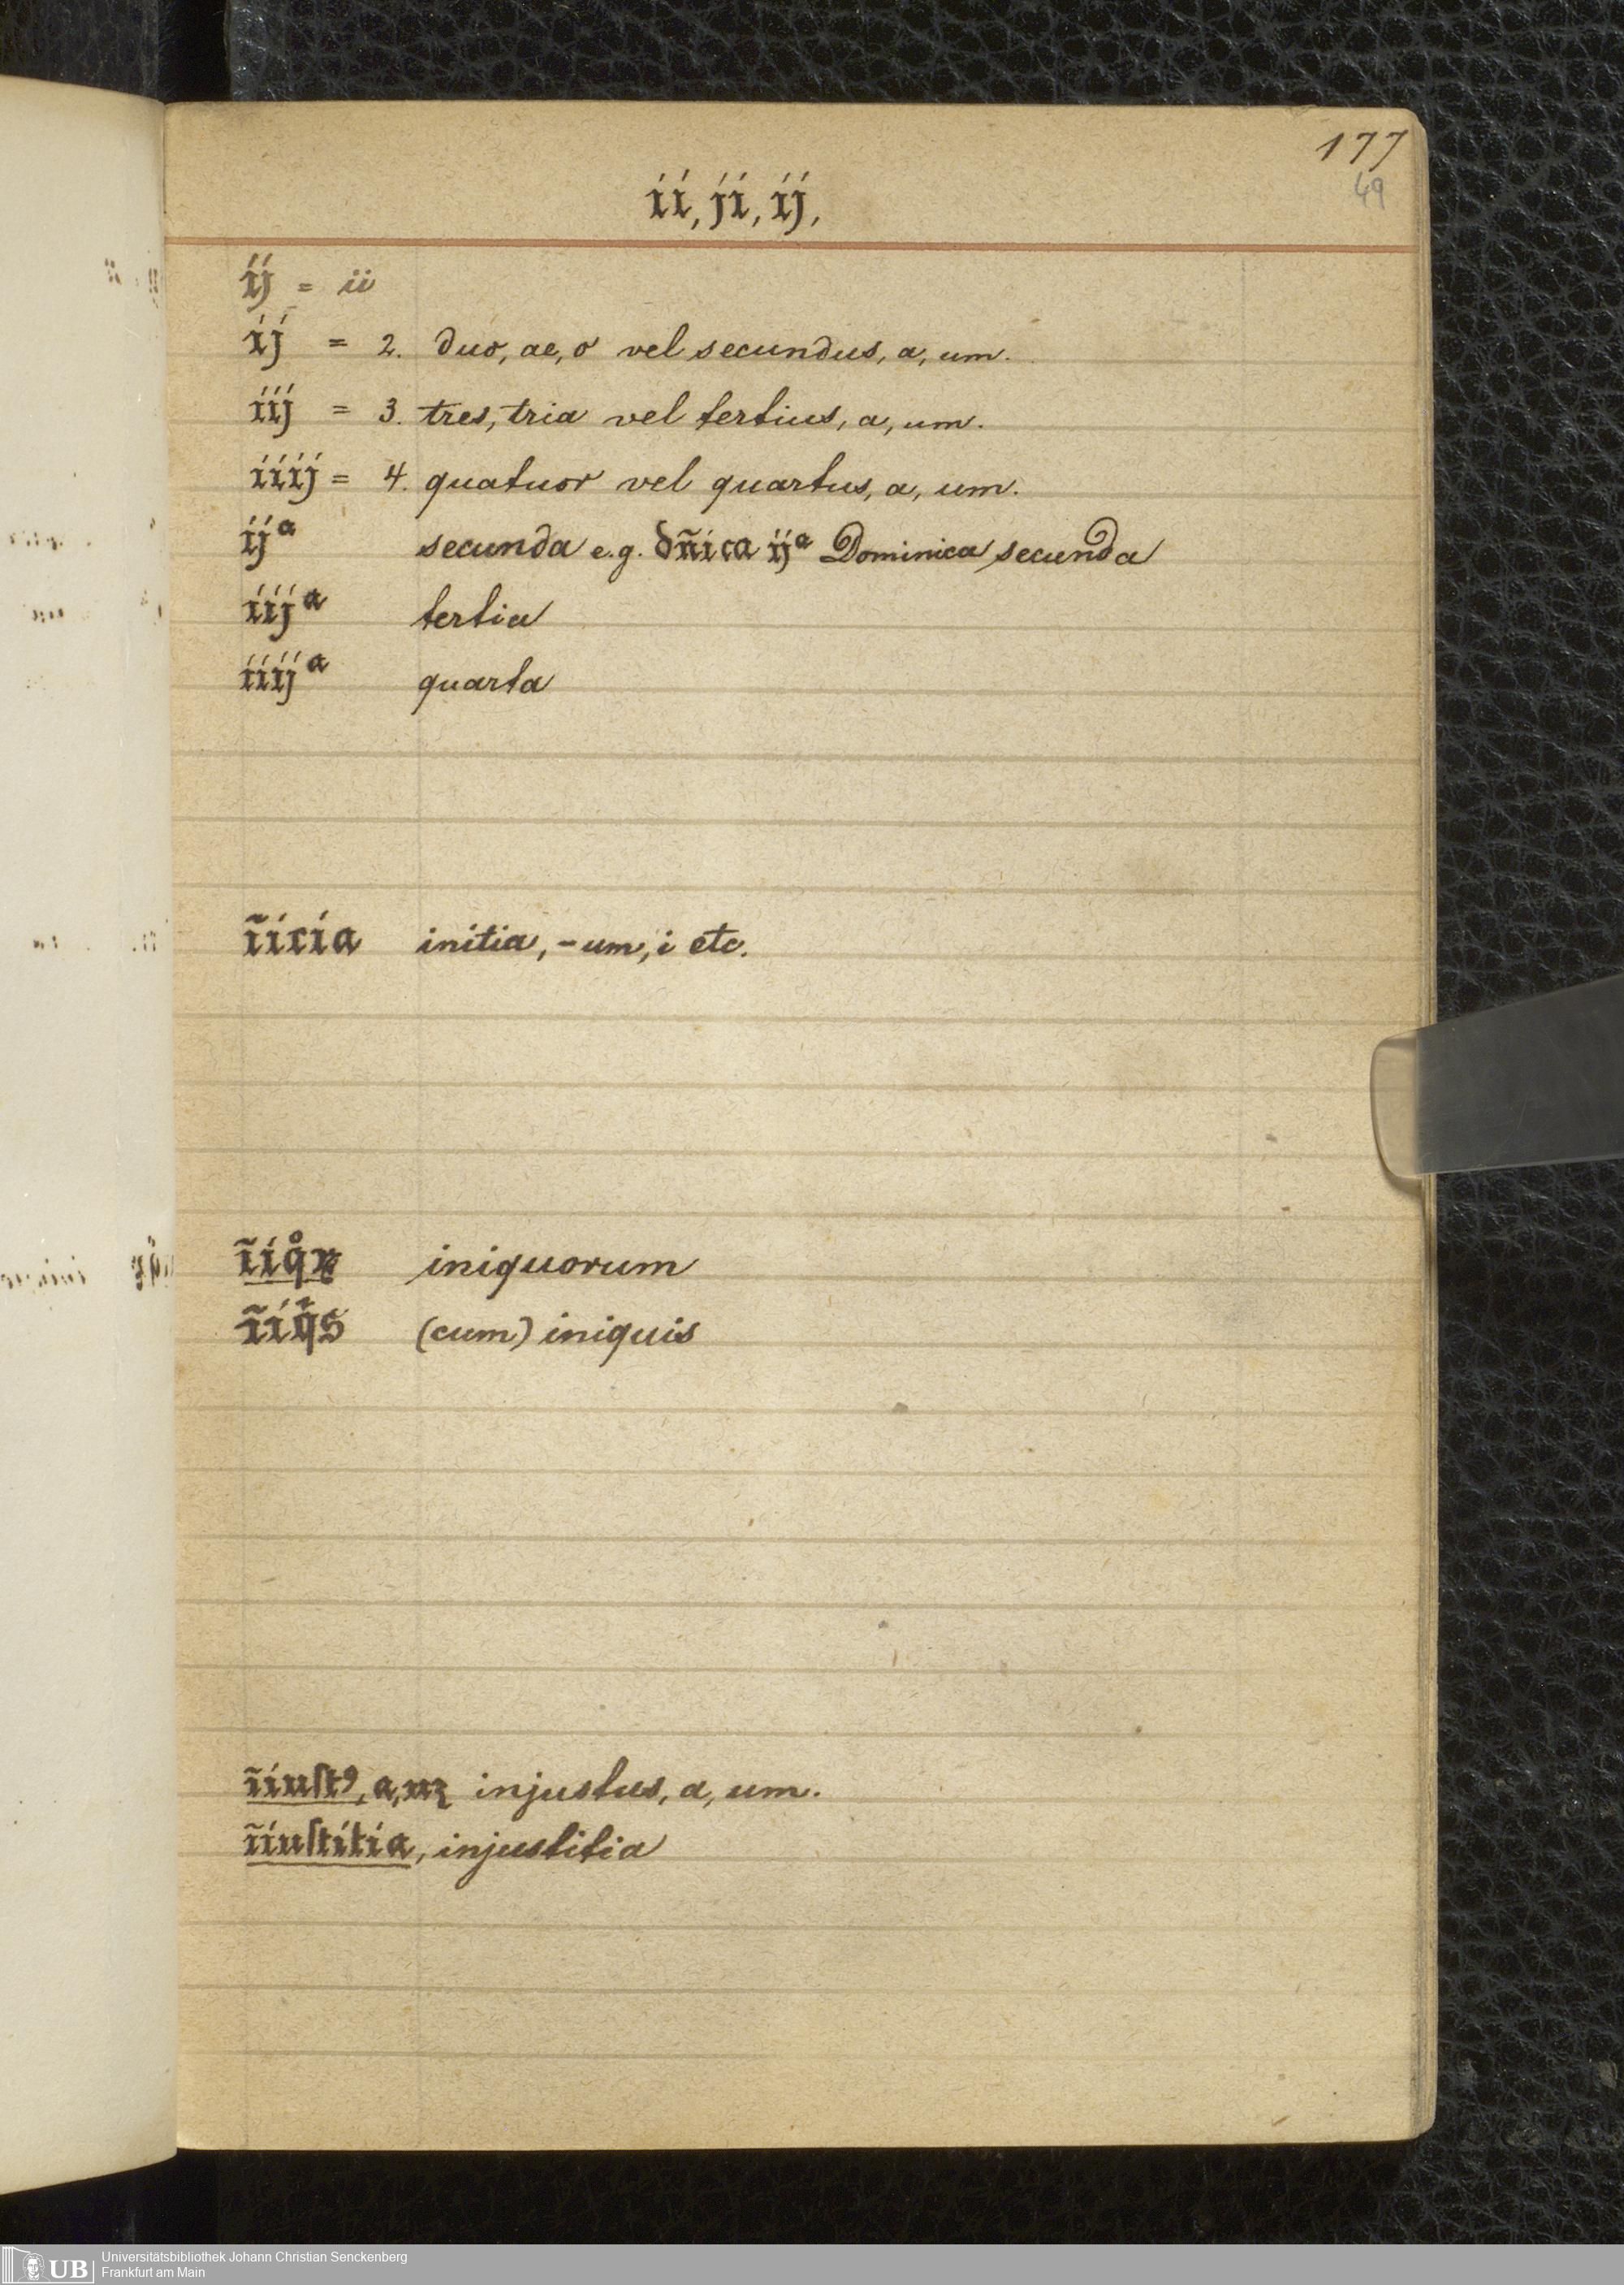 177
49
ii, ji, ij,
ij = ii
ij = 2. duo, ae, o vel secundus, a, um.
iij = 3. tres, tria vel tertius, a, um.
iiij = 4. quatuor vel quartus, a, um.
ijᵃ secunda e.g. dñica ijᵃ Dominica secunda
iijᵃ tertia
iiijᵃ quarta
ĩicia initia, -um, i etc.
ĩiqͦꝝ iniquorum
ĩiq̃s (cum) iniquis
ĩiuſtꝰ, a, uꝫ injustus, a, um.
ĩiuſtitia, injustitia
UB Universitätsbibliothek Johann Christian Senckenberg
Frankfurt am Main